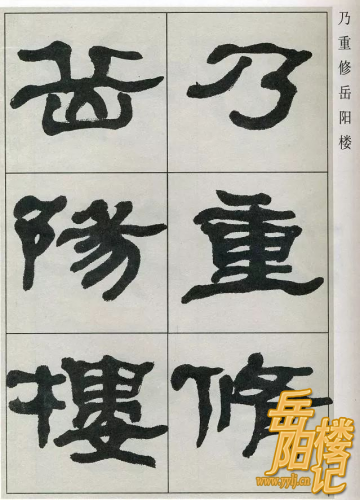 乃重修岳阳楼
乃重修
岳陽樓
岳阳楼记
www.yylj.cn